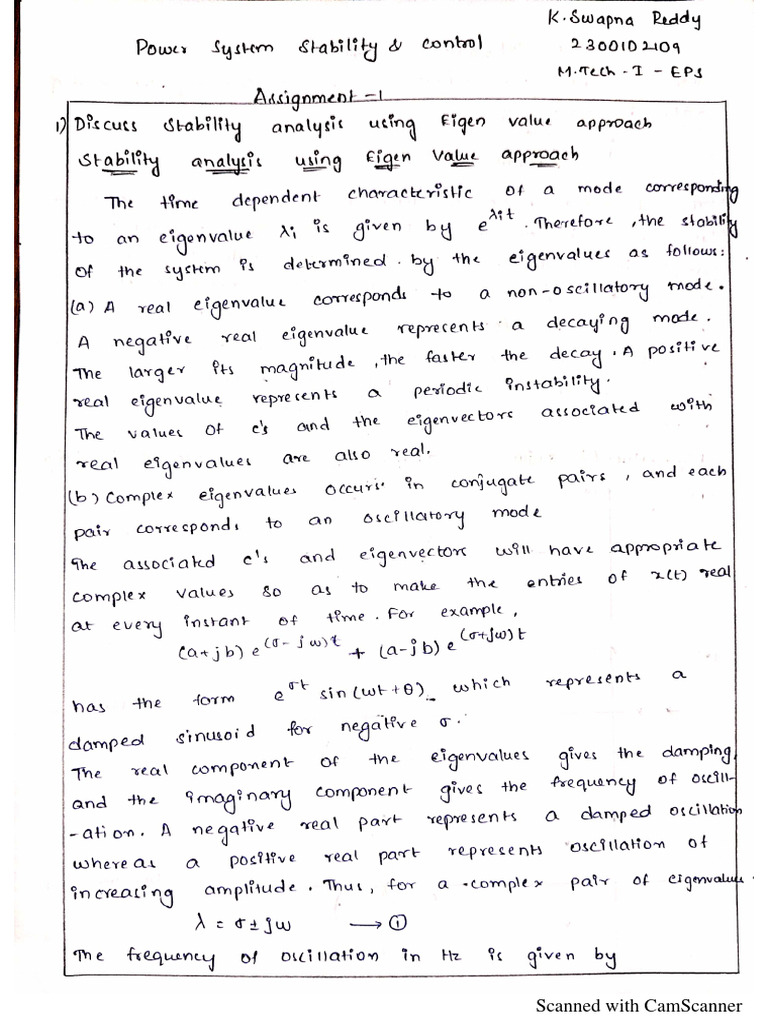 K. Swapna Reddy
Power System Stability & Control
2300102109
M.Tech - I - EPS
Assignment - 1
1) Discuss stability analysis using Eigen value approach
Stability analysis using Eigen Value approach
The time dependent characteristic of a mode corresponding
to an eigenvalue λi is given by e^λit. Therefore, the stability
of the system is determined. by the eigenvalues as follows:
(a) A real eigenvalue corresponds to a non-oscillatory mode.
A negative real eigenvalue represents a decaying mode.
The larger its magnitude, the faster the decay. A positive
real eigenvalue represents a periodic instability.
The values of c's and the eigenvectors associated with
real eigenvalues are also real.
(b) Complex eigenvalues occurs in conjugate pairs, and each
pair corresponds to an oscillatory mode
The associated c's and eigenvectors will have appropriate
complex values so as to make the entries of x(t) real
at every instant of time. For example,
(a+jb) e^(σ-jω)t + (a-jb) e^(σ+jω)t
has the form e^σt sin(ωt+θ) which represents a
damped sinusoid for negative σ.
The real component of the eigenvalues gives the damping,
and the imaginary component gives the frequency of oscill-
-ation. A negative real part represents a damped oscillation
where as a positive real part represents oscillation of
increasing amplitude. Thus, for a complex pair of eigenvalues.
λ = σ ± jω → ①
The frequency of oscillation in Hz is given by
Scanned with CamScanner